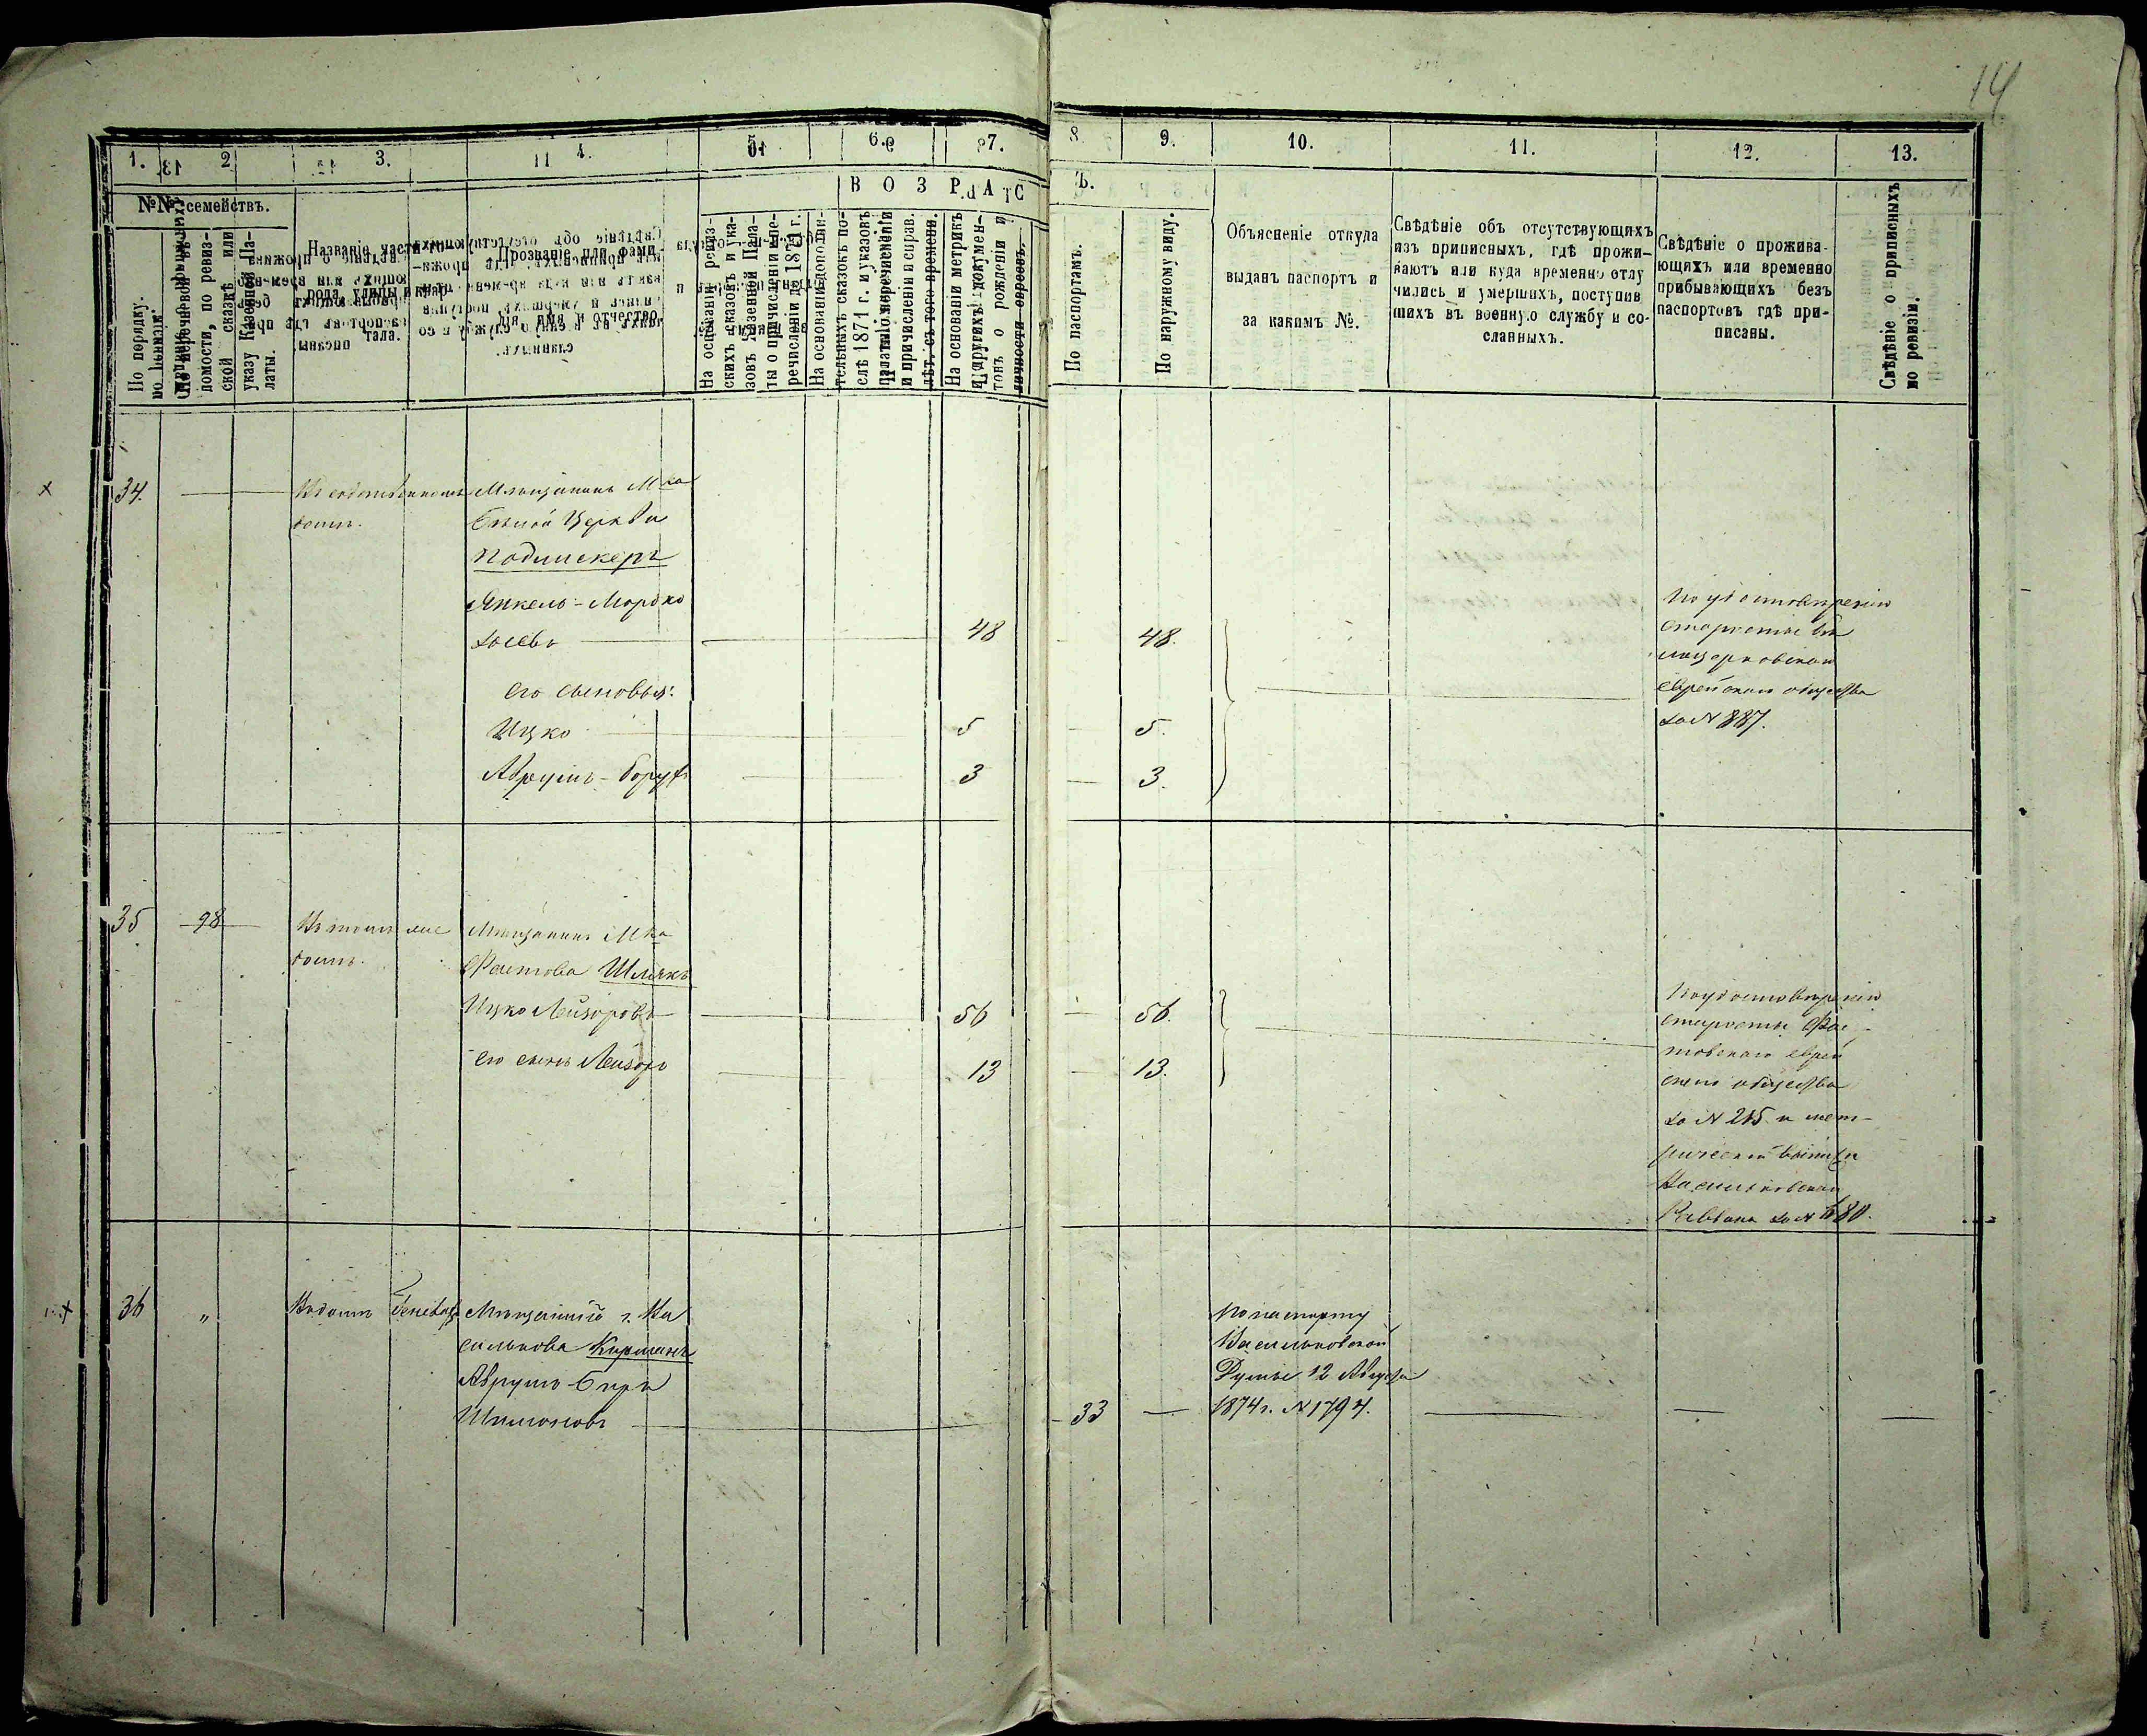 14
1. 2 3. 4. 5. 6. 7. 8. 9. 10. 11. 12. 13.
№№ семействъ.
По порядку.
домости, по ревиз-
ской сказкѣ или
указу Казенной Па-
латы.
Названіе части го-
рода, улицы и квар-
тала.
Прозваніе или фами-
лія, имя и отчество
В О З Р А С Т
Ъ.
На основаніи ревиз-
скихъ сказокъ и ука-
зовъ Казенной Пала-
ты о причисленіи и пе-
речисленіи до 1871 г.
На основаніи дополни-
тельныхъ сказокъ по-
слѣ 1871 г. и указовъ
палаты о перечисленіи
и причисленіи и справ.
лѣт. съ того времени.
На основаніи метрикъ
и другихъ докумен-
товъ о рожденіи и
личности евреевъ.
По паспортамъ.
По наружному виду.
Объясненіе откуда
выданъ паспортъ и
за какимъ №.
Свѣдѣніе объ отсутствующихъ
изъ приписныхъ, гдѣ прожи-
ваютъ или куда временно отлу
чились и умершихъ, поступив
шихъ въ военную службу и со-
сланныхъ.
Свѣдѣніе о прожива-
ющихъ или временно
прибывающихъ безъ
паспортовъ гдѣ при-
писаны.
Свѣдѣніе о приписныхъ
по ревизіи.
34. Въ собственномъ Мѣщанинъ Мка
домѣ. Бѣлой Церкви
Подлискеръ
Янкель-Мордко
48 48.
Его сыновья:
Ицко 5 5.
Аврумъ-Борухъ 3 3.
По удостовѣренію
старосты Бѣ
лоцерковскаго
еврейскаго общества
за № 887.
35 98 Въ томъ же Мѣщанинъ Мка
домѣ. Фастова Шлякъ
Ицко Лейзоровъ 56 56.
Его сынъ Лейзоръ 13 13.
По удостовѣренію
старосты Фас
товскаго еврей
скаго общества
за № 215 и мет-
рической выписки
Васильковскаго
Раввина за № 680.
36 " Въ домѣ Мѣщанинъ г. Ва
силькова Кирманъ
Аврумъ-Беръ
Шимоновъ 33
По паспорту
Васильковской
Думы 12 Августа
1874 г. № 1794.